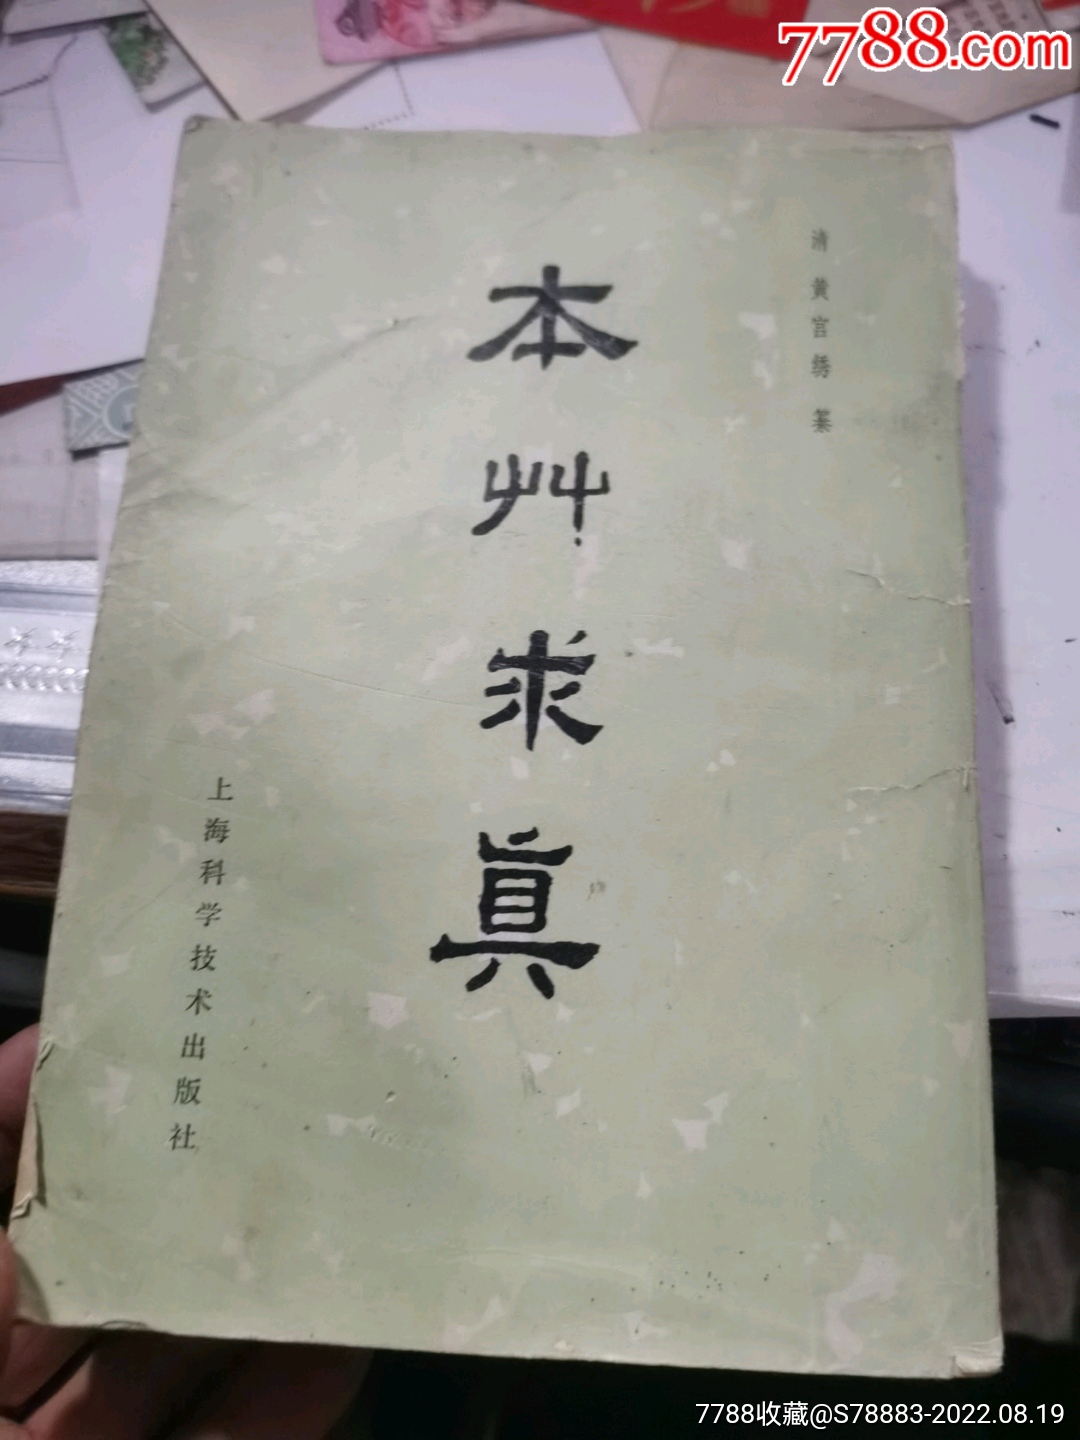 7788.com
清 黄宫绣 纂
本艸求眞
上海科学技术出版社
7788收藏@S78883-2022.08.19